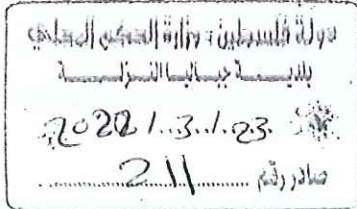 دولة فلسطين - وزارة الحكم المحلي
بلديـــة جباليا النـزلـــة
2022/.3./.23
صادر رقم ......211......